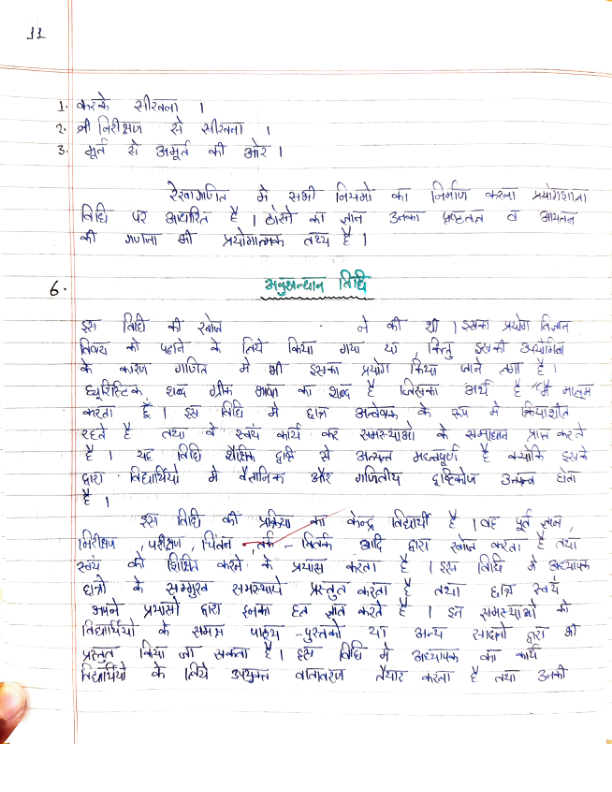 11
1. करके सीखना ।
2. निरीक्षण से सीखना ।
3. मूर्त से अमूर्त की ओर ।
रेखागणित मे सभी नियमो का निर्माण करना प्रयोगशाला
विधि पर आधारित है । ठोसो का ज्ञान उनका पृष्ठतल व आयतन
की गणना भी प्रयोगात्मक तथ्य है ।
6. अनुसन्धान विधि
इस विधि की खोज ने की थी । इसका प्रयोग विज्ञान
विषय को पढ़ाने के लिये किया गया था, किंतु इसकी उपयोगिता
के कारण गणित मे भी इसका प्रयोग किया जाने लगा है ।
ह्यूरिस्टिक शब्द ग्रीक भाषा का शब्द है जिसका अर्थ है "मै मालूम
करता हूँ । इस विधि मे छात्र अन्वेषक के रूप मे क्रियाशील
रहते है तथा वे स्वयं कार्य कर समस्याओ के समाधान प्राप्त करते
है । यह विधि शैक्षिक दृष्टि से अत्यन्त महत्वपूर्ण है क्योकि इसके
द्वारा विद्यार्थियो मे वैज्ञानिक और गणितीय दृष्टिकोण उत्पन्न होता
है ।
इस विधि की प्रक्रिया का केन्द्र विद्यार्थी है । वह पूर्व ज्ञान,
निरीक्षण, परीक्षण, चिंतन, तर्क - वितर्क आदि द्वारा खोज करता है तथा
स्वयं को शिक्षित करने के प्रयास करता है । इस विधि मे अध्यापक
छात्रो के सम्मुख समस्याये प्रस्तुत करता है तथा छात्र स्वयं
अपने प्रयासो द्वारा इनका हल ज्ञात करते है । इन समस्याओ को
विद्यार्थियो के समक्ष पाठ्य - पुस्तको या अन्य साधनो द्वारा भी
प्रस्तुत किया जा सकता है । इस विधि मे अध्यापक का कार्य
विद्यार्थियो के लिये उपयुक्त वातावरण तैयार करना है तथा उनकी